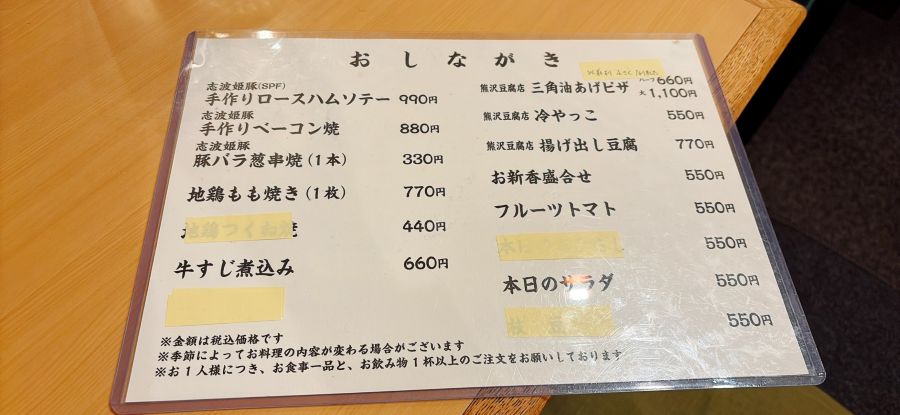 おしながき
志波姫豚(SPF)
手作りロースハムソテー 990円
志波姫豚
手作りベーコン焼 880円
志波姫豚
豚バラ葱串焼(1本) 330円
地鶏もも焼き(1枚) 770円
地鶏つくね焼 440円
牛すじ煮込み 660円
熊沢豆腐店 三角油あげピザ ハーフ660円
大1,100円
熊沢豆腐店 冷やっこ 550円
熊沢豆腐店 揚げ出し豆腐 770円
お新香盛合せ 550円
フルーツトマト 550円
550円
本日のサラダ 550円
枝豆 550円
※金額は税込価格です
※季節によってお料理の内容が変わる場合がございます
※お1人様につき、お食事一品と、お飲み物1杯以上のご注文をお願いしております